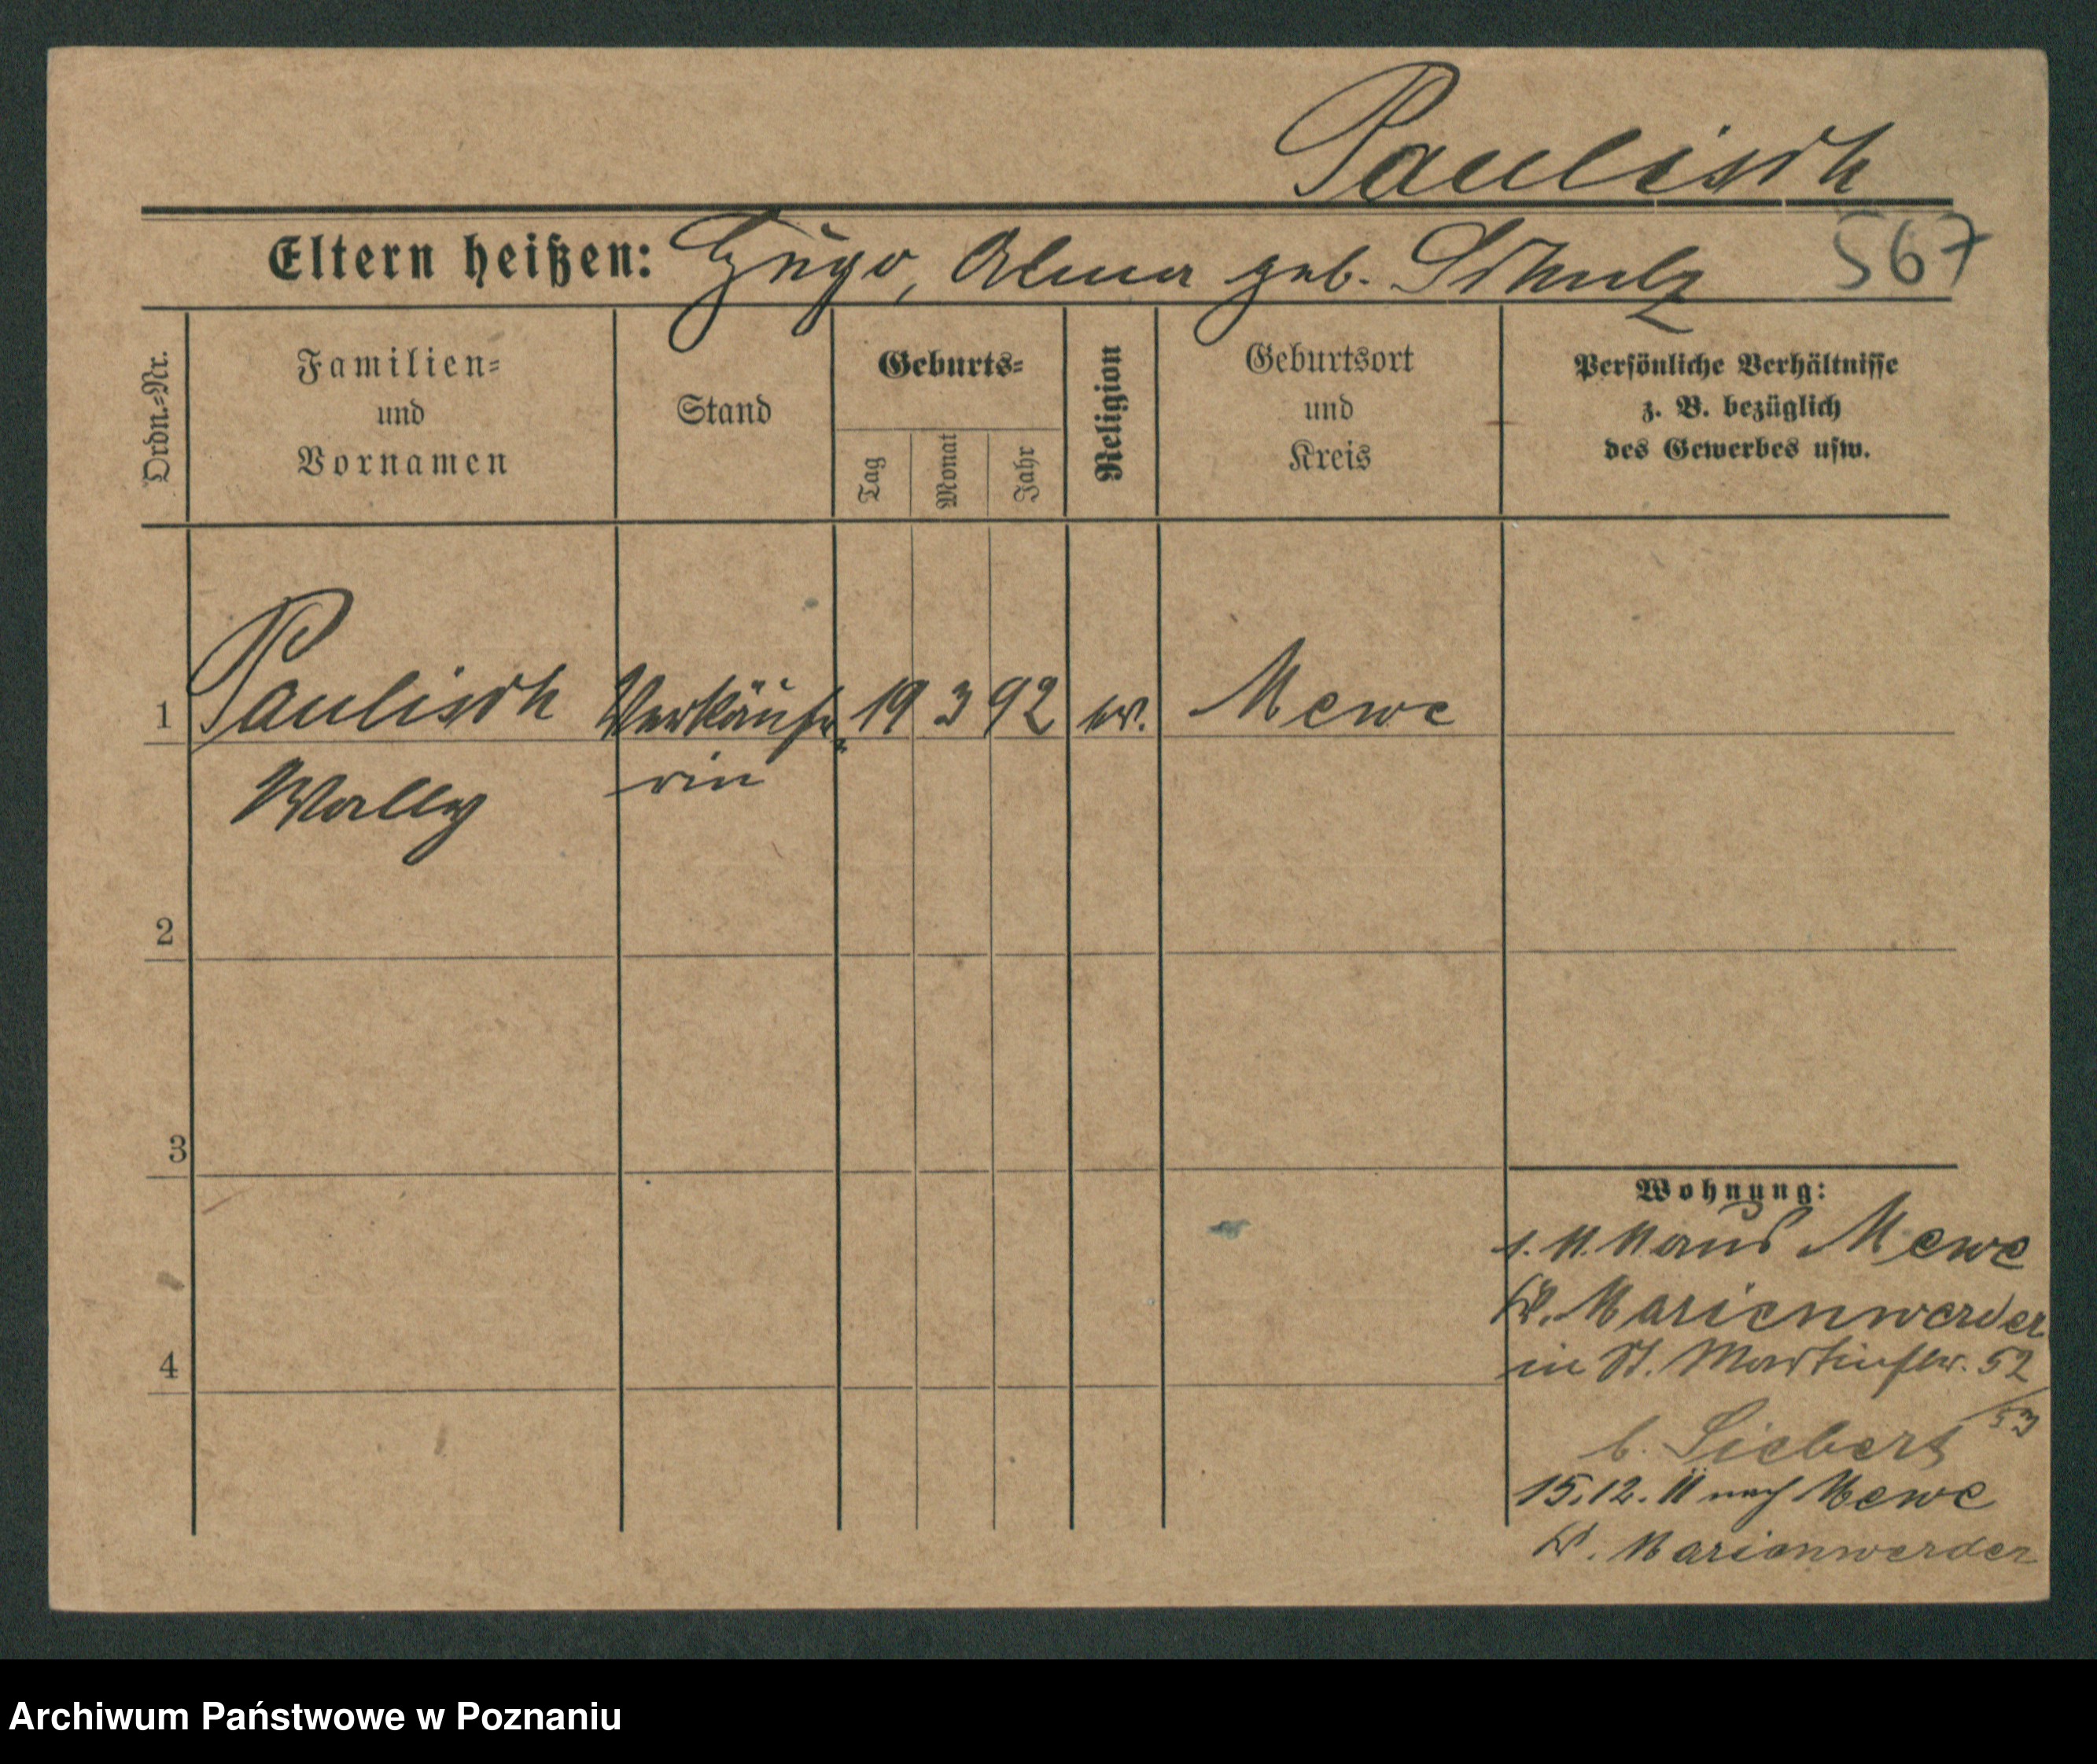 Paulisch
Eltern heißen: Hugo, Alma geb. Schulz 567
Ordn.-Nr.
Familien-
und
Vornamen
Stand
Geburts-
Tag
Monat
Jahr
Religion
Geburtsort
und
Kreis
Persönliche Verhältnisse
z. B. bezüglich
des Gewerbes usw.
1 Paulisch Verkäufe- 19 3 92 ev. Mewe
Wally rin
2
3
Wohnung:
1. 11. 11 aus Mewe
Kr. Marienwerder
4
in St. Martinstr. 52
/53
b. Siebert
15.12.11 nach Mewe
Kr. Marienwerder
Archiwum Państwowe w Poznaniu